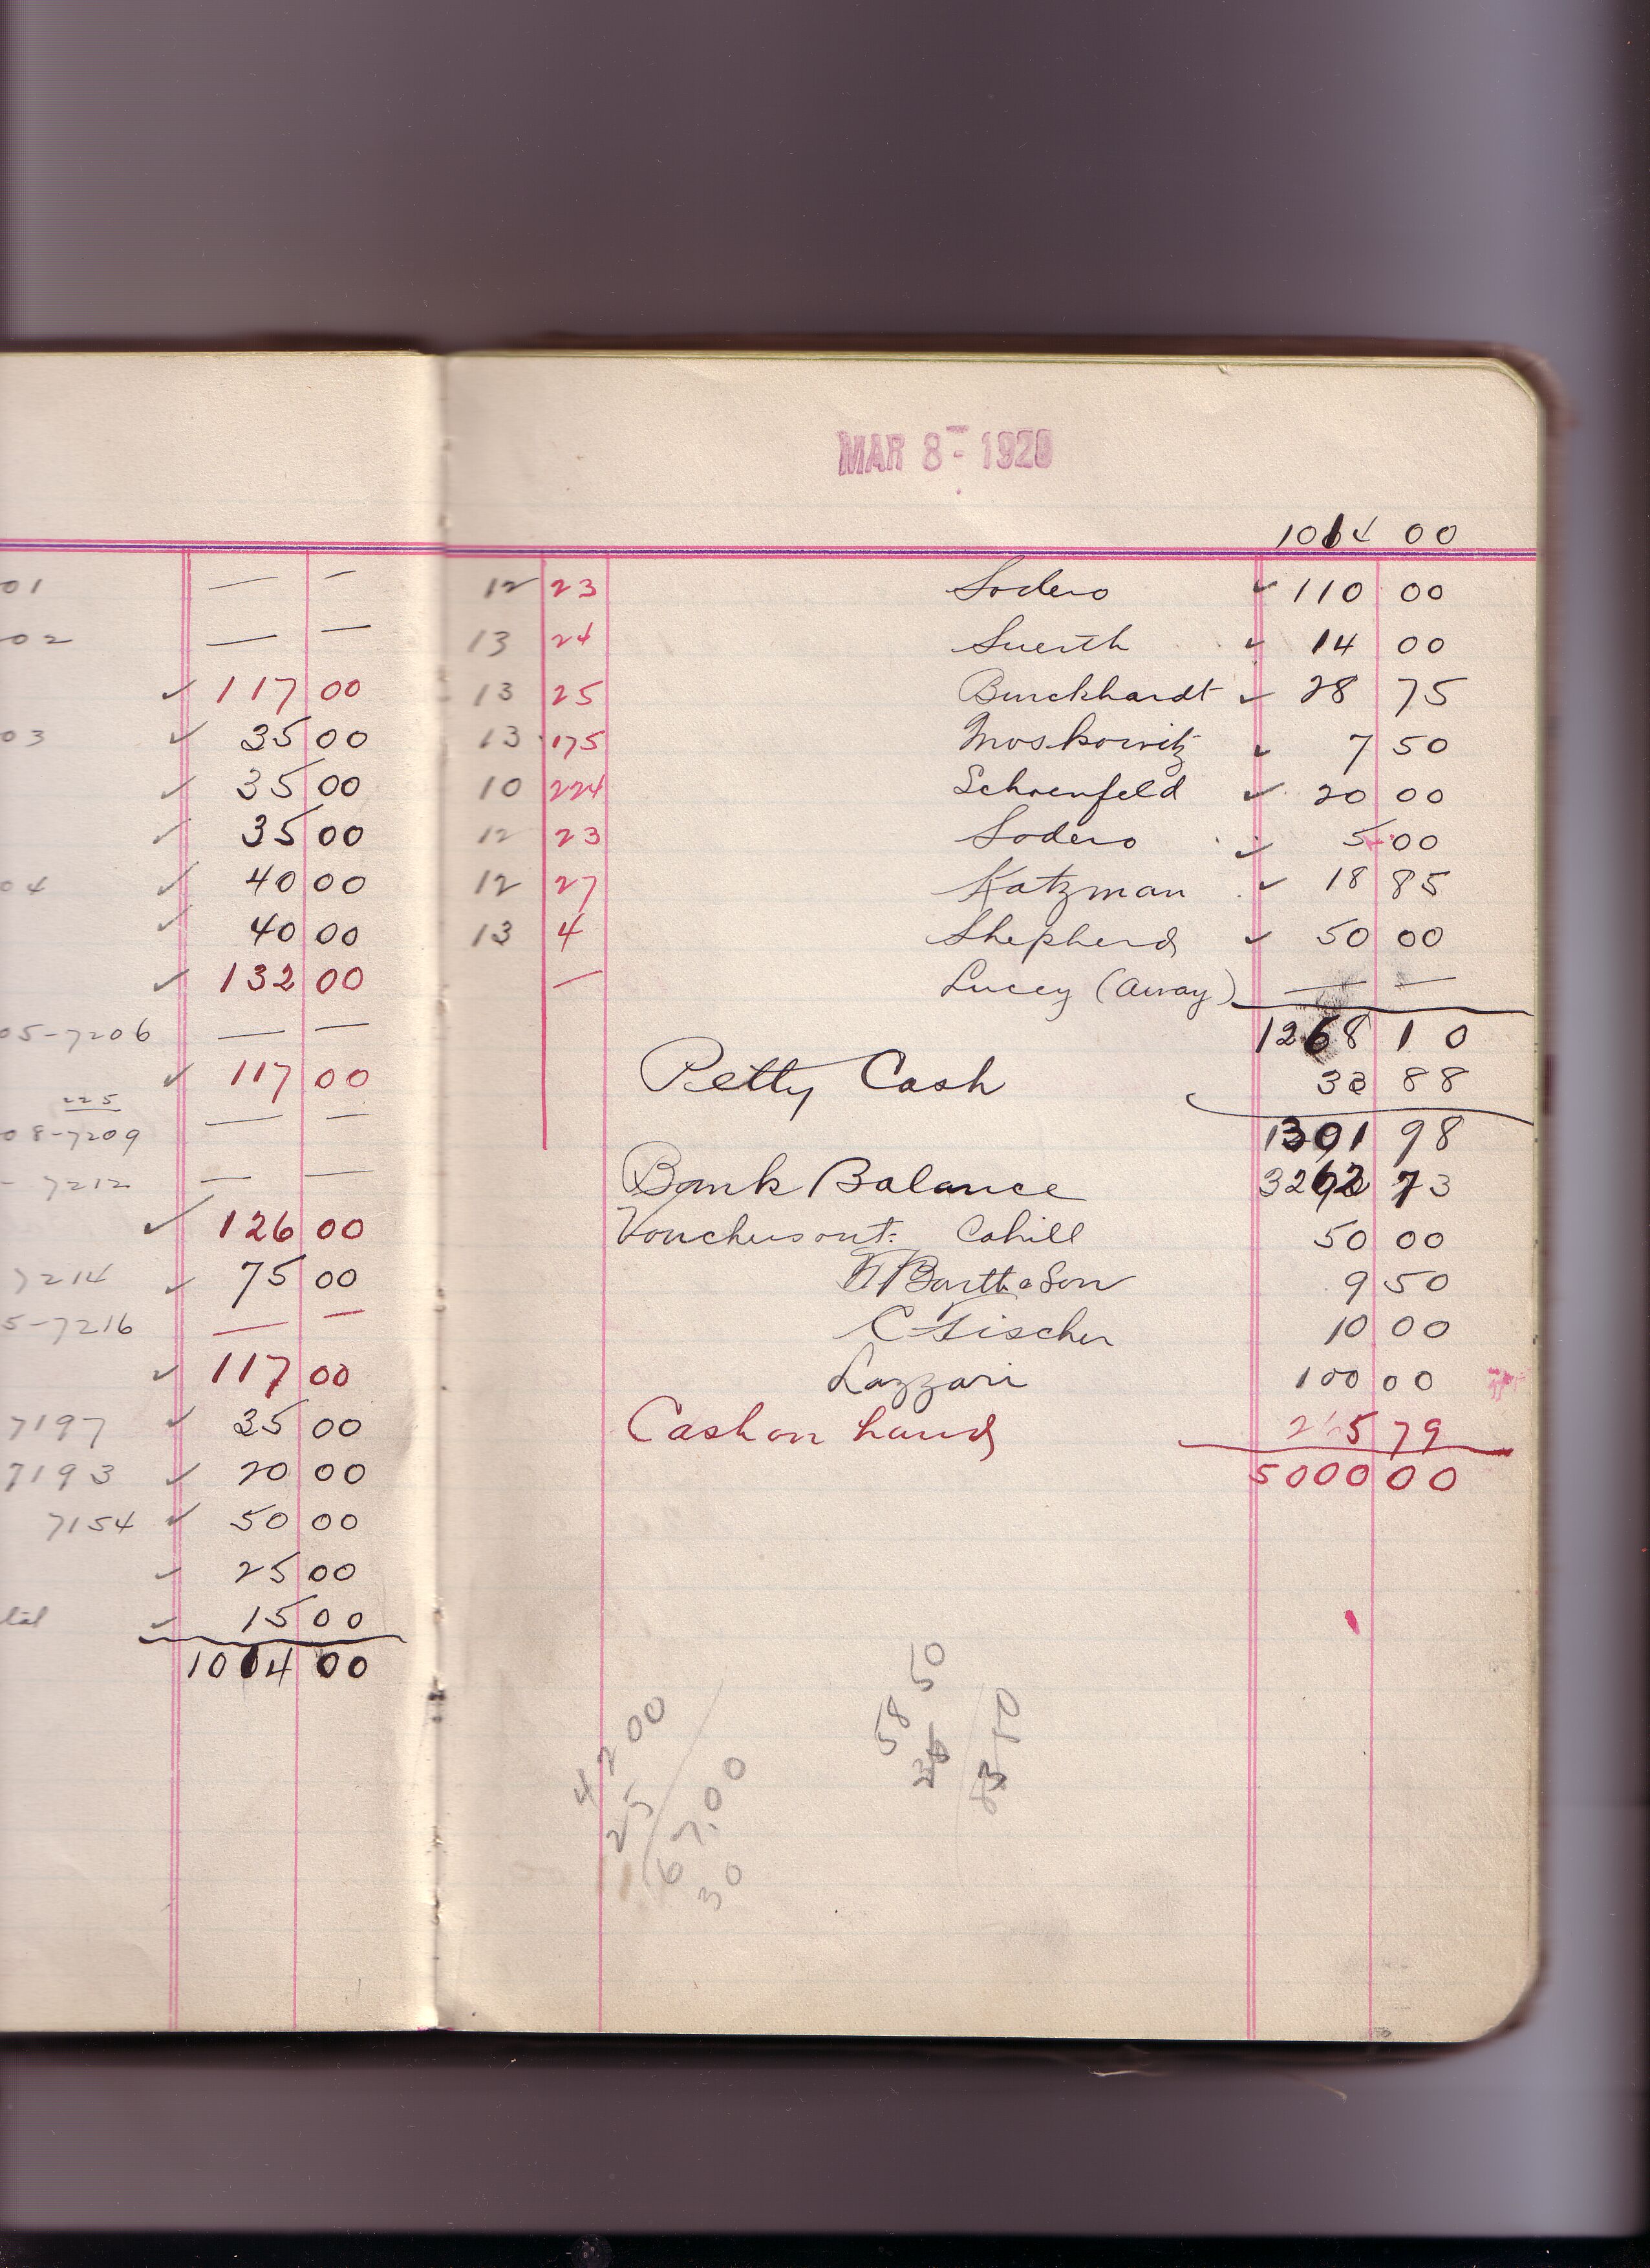 01 — —
02 — —
✓ 117 00
03 ✓ 35 00
✓ 35 00
✓ 35 00
04 ✓ 40 00
✓ 40 00
✓ 132 00
05-7206 — —
✓ 117 00
225
08-7209 — —
- 7212 — —
✓ 126 00
7214 ✓ 75 00
5-7216 — —
✓ 117 00
7197 ✓ 35 00
7193 ✓ 20 00
7154 ✓ 50 00
✓ 25 00
✓ 15 00
1014 00
MAR 8 - 1920
1014 00
12 23 Sodero ✓ 110 00
13 24 Suerth ✓ 14 00
13 25 Burckhardt ✓ 28 75
13 175 Moskowitz ✓ 7 50
10 224 Schoenfeld ✓ 20 00
12 23 Sodero ✓ 5 00
12 27 Katzman ✓ 18 85
13 4 Shepherd ✓ 50 00
— Lucey (Away) — —
1268 10
Petty Cash 33 88
1301 98
Bank Balance 3262 73
Vouchers out: Cahill 50 00
Barth & Son 9 50
C Fischer 10 00
Lazzari 100 00
Cash on hand 265 79
5000 00
42 00
25
67.00
30
50
58